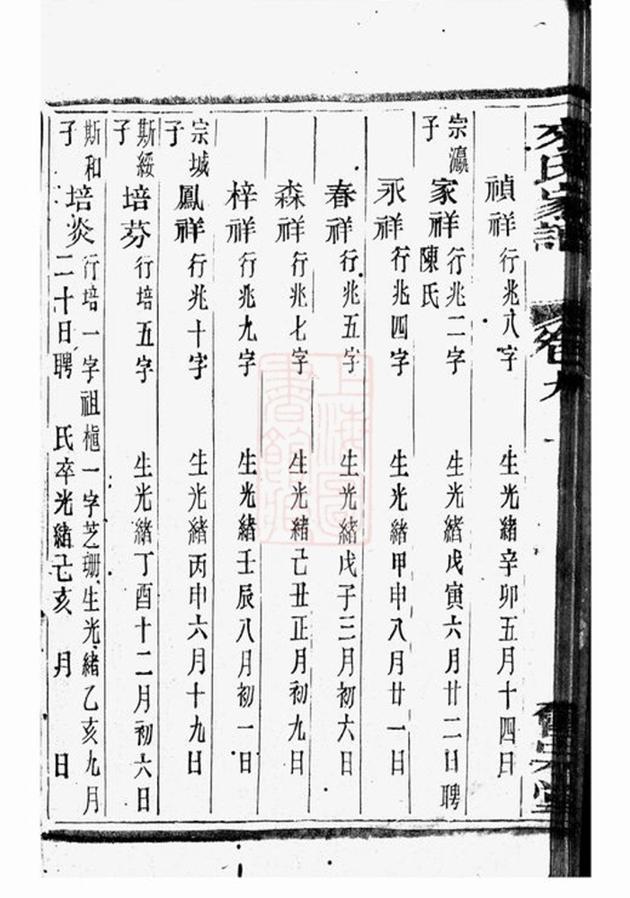 禎祥行兆八字 生光緒辛卯五月十四日
宗瀛子 家祥行兆二字 生光緒戊寅六月廿二日聘
陳氏
永祥行兆四字 生光緒甲申八月廿一日
春祥行兆五字 生光緒戊子三月初六日
森祥行兆七字 生光緒己丑正月初九日
梓祥行兆九字 生光緒壬辰八月初一日
宗城子 鳳祥行兆十字 生光緒丙申六月十九日
斯綏子 培芬行培五字 生光緒丁酉十二月初六日
斯和子 培炎行培一字祖植一字芝珊生光緒乙亥九月
二十日聘 氏卒光緒己亥 月 日
氏家譜
卷九
上海圖書館藏